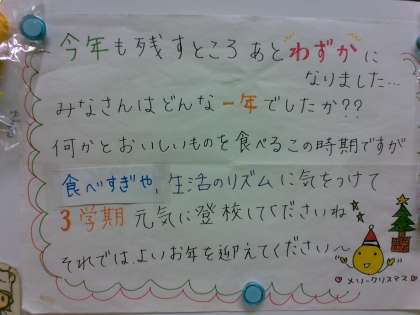 今年も残すところあとわずかに
なりました…
みなさんはどんな一年でしたか??
何かとおいしいものを食べるこの時期ですが
食べすぎや、生活のリズムに気をつけて
3学期 元気に登校してくださいね☆
それでは、よいお年を迎えてください〜
♡メリークリスマス♡